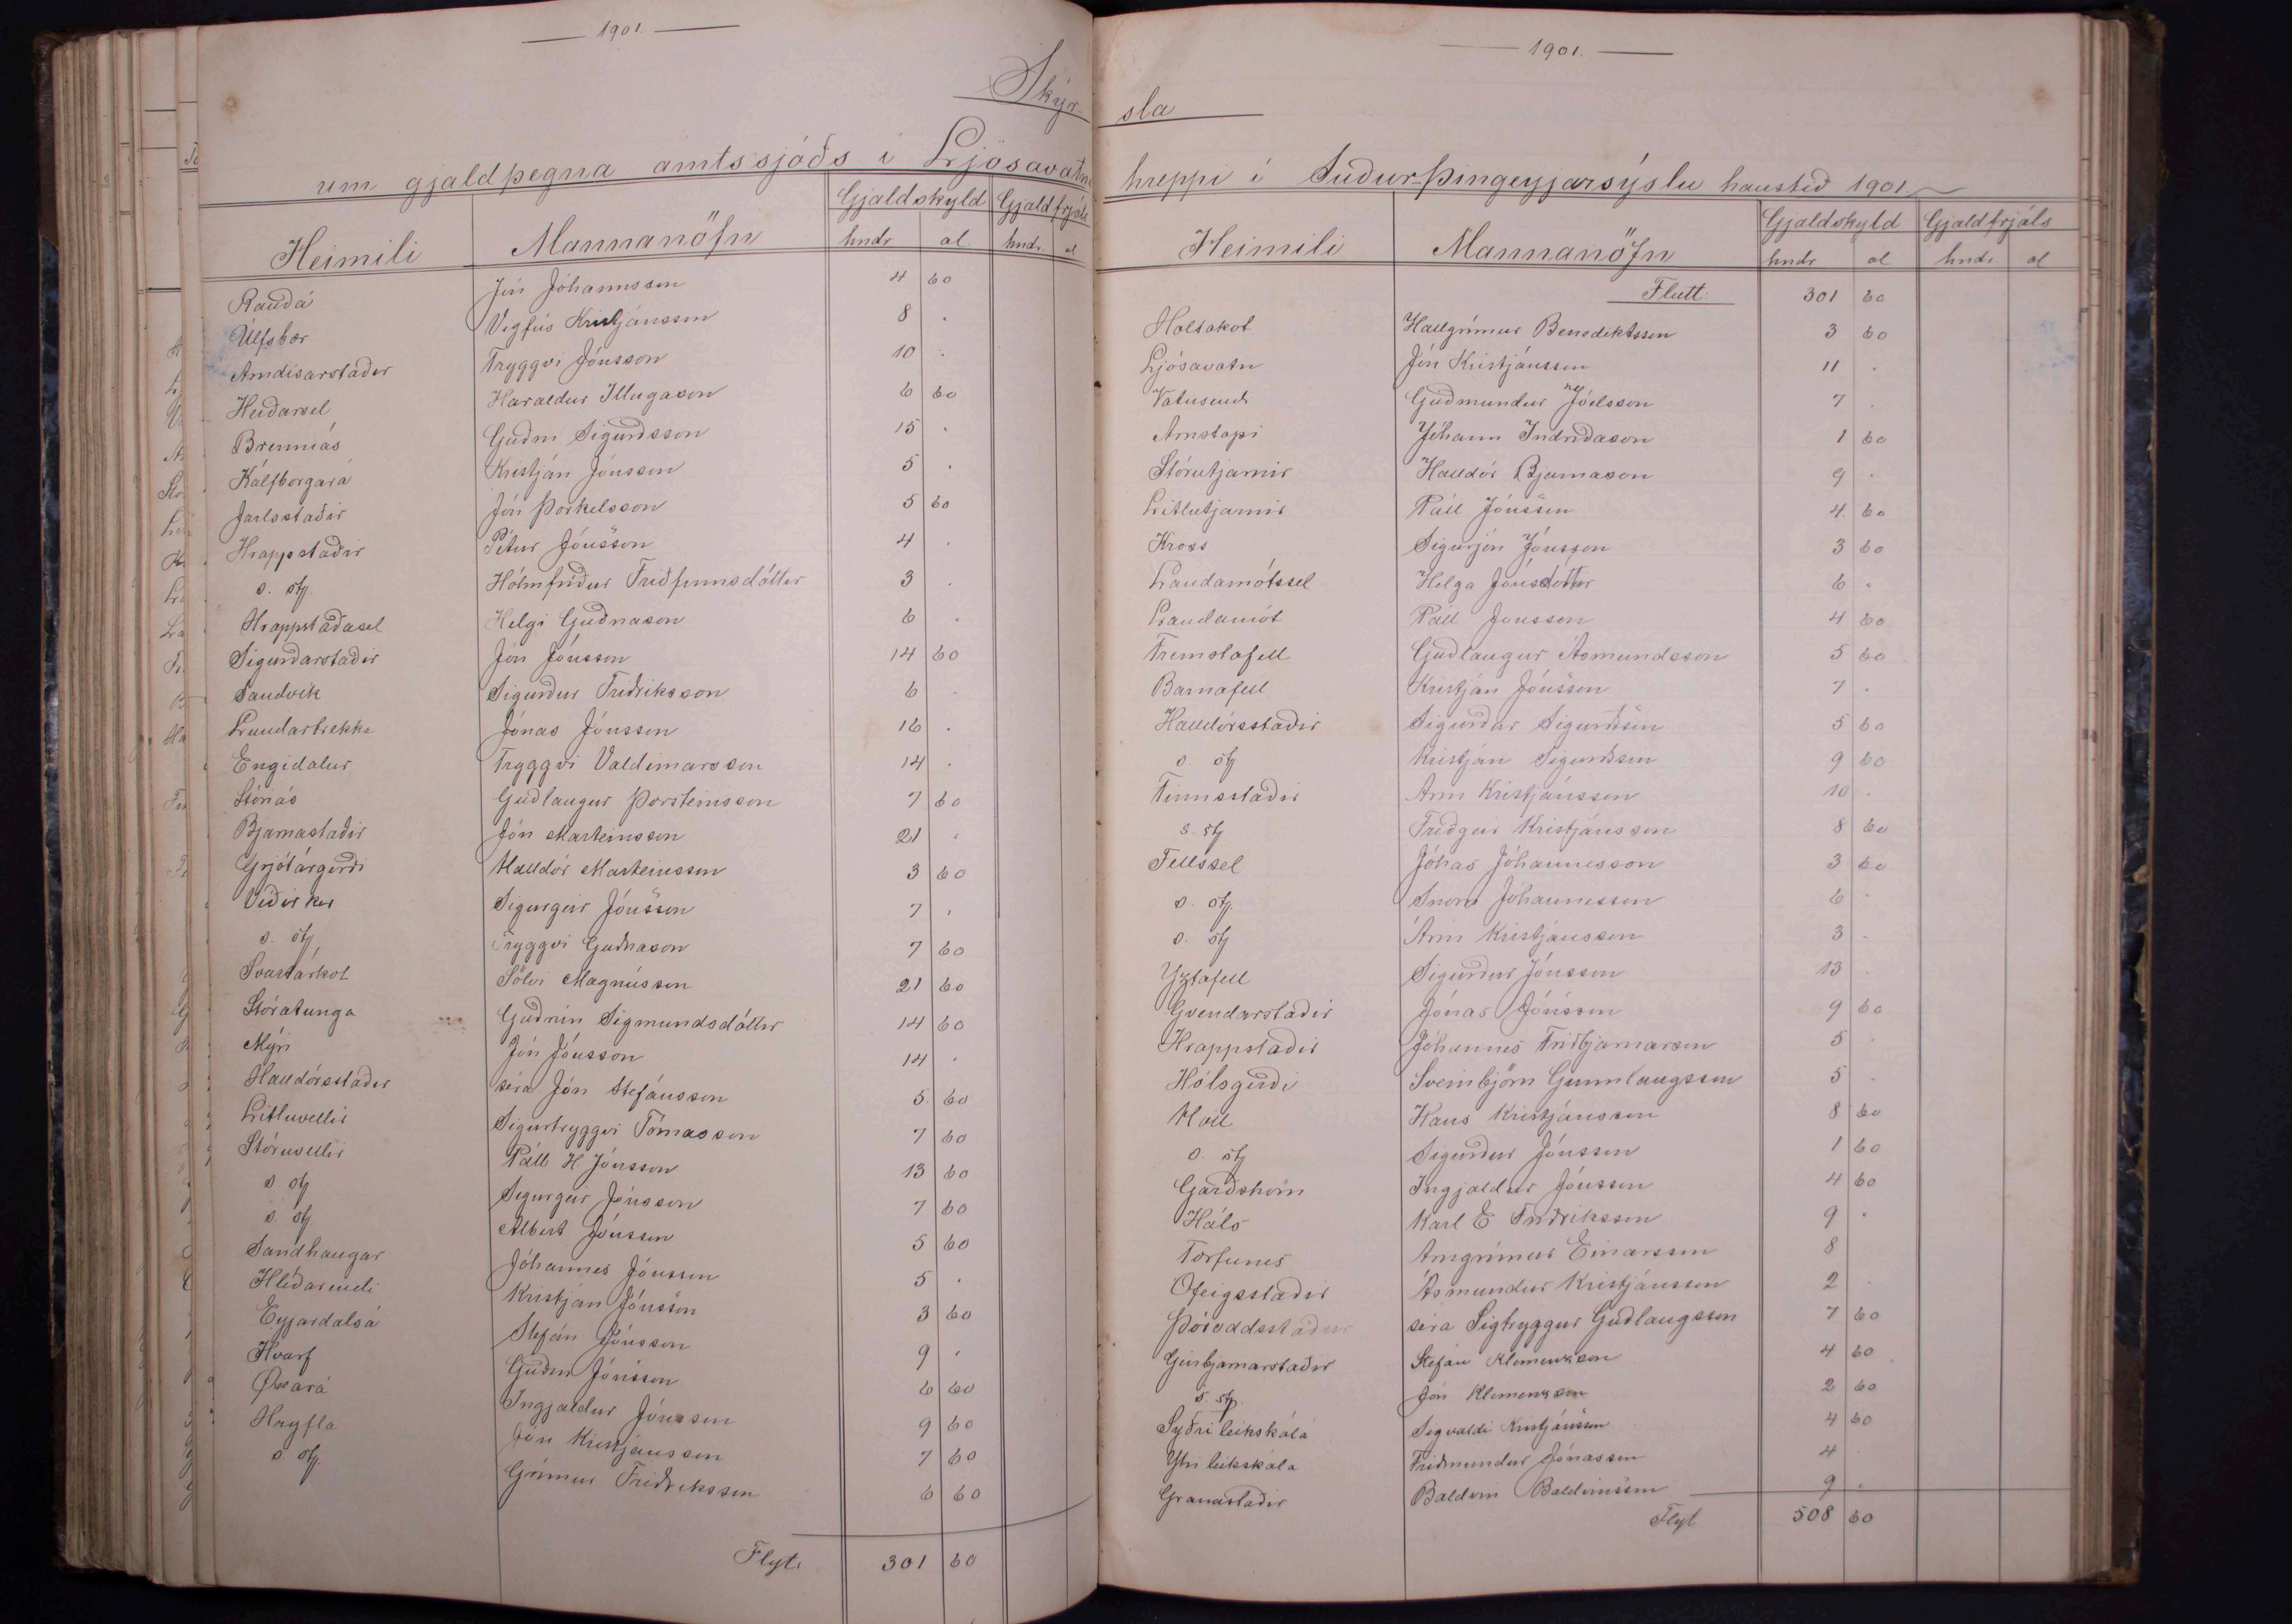 1901.
Skýr-
um gjaldþegna amtssjóðs í Ljósavatns
Heimili Mannanöfn Gjaldskyld Gjaldfrjáls
hndr al. hndr. al
Rauðá Jón Jóhannsson 4 60
Úlfsbær Vigfús Kristjánsson 8 .
Arndísarstaðir Tryggvi Jónsson 10 .
Heiðarsel Haraldur Illugason 6 60
Brenniás Guðni Sigurðsson 15 .
Kálfborgará Kristján Jónsson 5 .
Jarlsstaðir Jón Þorkelsson 5 60
Hrappstaðir Pétur Jónsson 4 .
s. st. Hólmfríður Friðfinnsdóttir 3 .
Hrappstaðasel Helgi Guðnason 6 .
Sigurðarstaðir Jón Jónsson 14 60
Sandvík Sigurður Friðriksson 6 .
Lundarbrekka Jónas Jónsson 16 .
Engidalur Tryggvi Valdimarsson 14 .
Stórás Guðlaugur Þorsteinsson 7 60
Bjarnastaðir Jón Marteinsson 21 .
Grjótárgerði Halldór Marteinsson 3 60
Víðirker Sigurgeir Jónsson 7 .
s. st, Tryggvi Guðnason 7 60
Svartárkot Sölvi Magnússon 21 60
Stóratunga Guðrún Sigmundsdóttir 14 60
Mýri Jón Jónsson 14 .
Halldórsstaðir séra Jón Stefánsson 5 60
Litluvellir Sigurtryggvi Tómasson 7 60
Stóruvellir Páll H. Jónsson 13 60
s. st Sigurgeir Jónsson 7 60
s. st. Albert Jónsson 5 60
Sandhaugar Jóhannes Jónsson 5 .
Hlíðarendi Kristján Jónsson 3 60
Eyjardalsá Stefán Jónsson 9 .
Hvarf Guðni Jónsson 6 60
Øxará Ingjaldur Jónsson 9 60
Hrýfla Jón Kristjánsson 7 60
s. st. Grímur Friðriksson 6 60
Flyt. 301 60
1901.
sla
hreppi í Suður-Þingeyjarsýslu haustið 1901
Heimili Mannanöfn Gjaldskyld Gjaldfrjáls
hndr al hndr al
Flutt: 301 60
Holtakot Hallgrímur Benediktsson 3 60
Ljósavatn Jón Kristjánsson 11 .
Vatnsendi Guðmundur Jóelsson 7 .
Arnstapi Jóhann Indriðason 1 60
Stórutjarnir Halldór Bjarnason 9 .
Litlutjarnir Páll Jónsson 4 60
Kross Sigurjón Jónsson 3 60
Landamótssel Helga Jónsdóttir 6 .
Landamót Páll Jónsson 4 60
Fremstafell Guðlaugur Ásmundsson 5 60
Barnafell Kristján Jónsson 7 .
Halldórsstaðir Sigurður Sigurðsson 5 60
s. st Kristján Sigurðsson 9 60
Finnsstaðir Árni Kristjánsson 10 .
s. st Friðgeir Kristjánsson 8 60
Fellssel Jónas Jóhannesson 3 60
s. st. Snorri Jóhannesson 6 .
s. st Árni Kristjánsson 3 .
Yztafell Sigurður Jónsson 13
Gvendarstaðir Jónas Jónsson 9 60
Hrappstaðir Jóhannes Friðbjarnarson 5 .
Hólsgerði Sveinbjörn Gunnlaugsson 5 .
Hóll Hans Kristjánsson 8 60
s. st Sigurður Jónsson 1 60
Garðshorn Ingjaldur Jónsson 4 60
Háls Karl E Friðriksson 9 .
Torfunes Arngrímur Einarsson 8
Ófeigsstaðir Ásmundur Kristjánsson 2 .
Þóroddsstaður séra Sigtryggur Guðlaugsson 7 60
Geirbjarnarstaðir Stefán Klemenzson 4 60
s. st. Jón Klemenzson 2 60
Syðri leikskálá Sigvaldi Kristjánsson 4 60
Ytri leikskála Friðmundur Jónasson 4
Granastaðir Baldvin Baldvinsson 9 .
Flyt 508 60